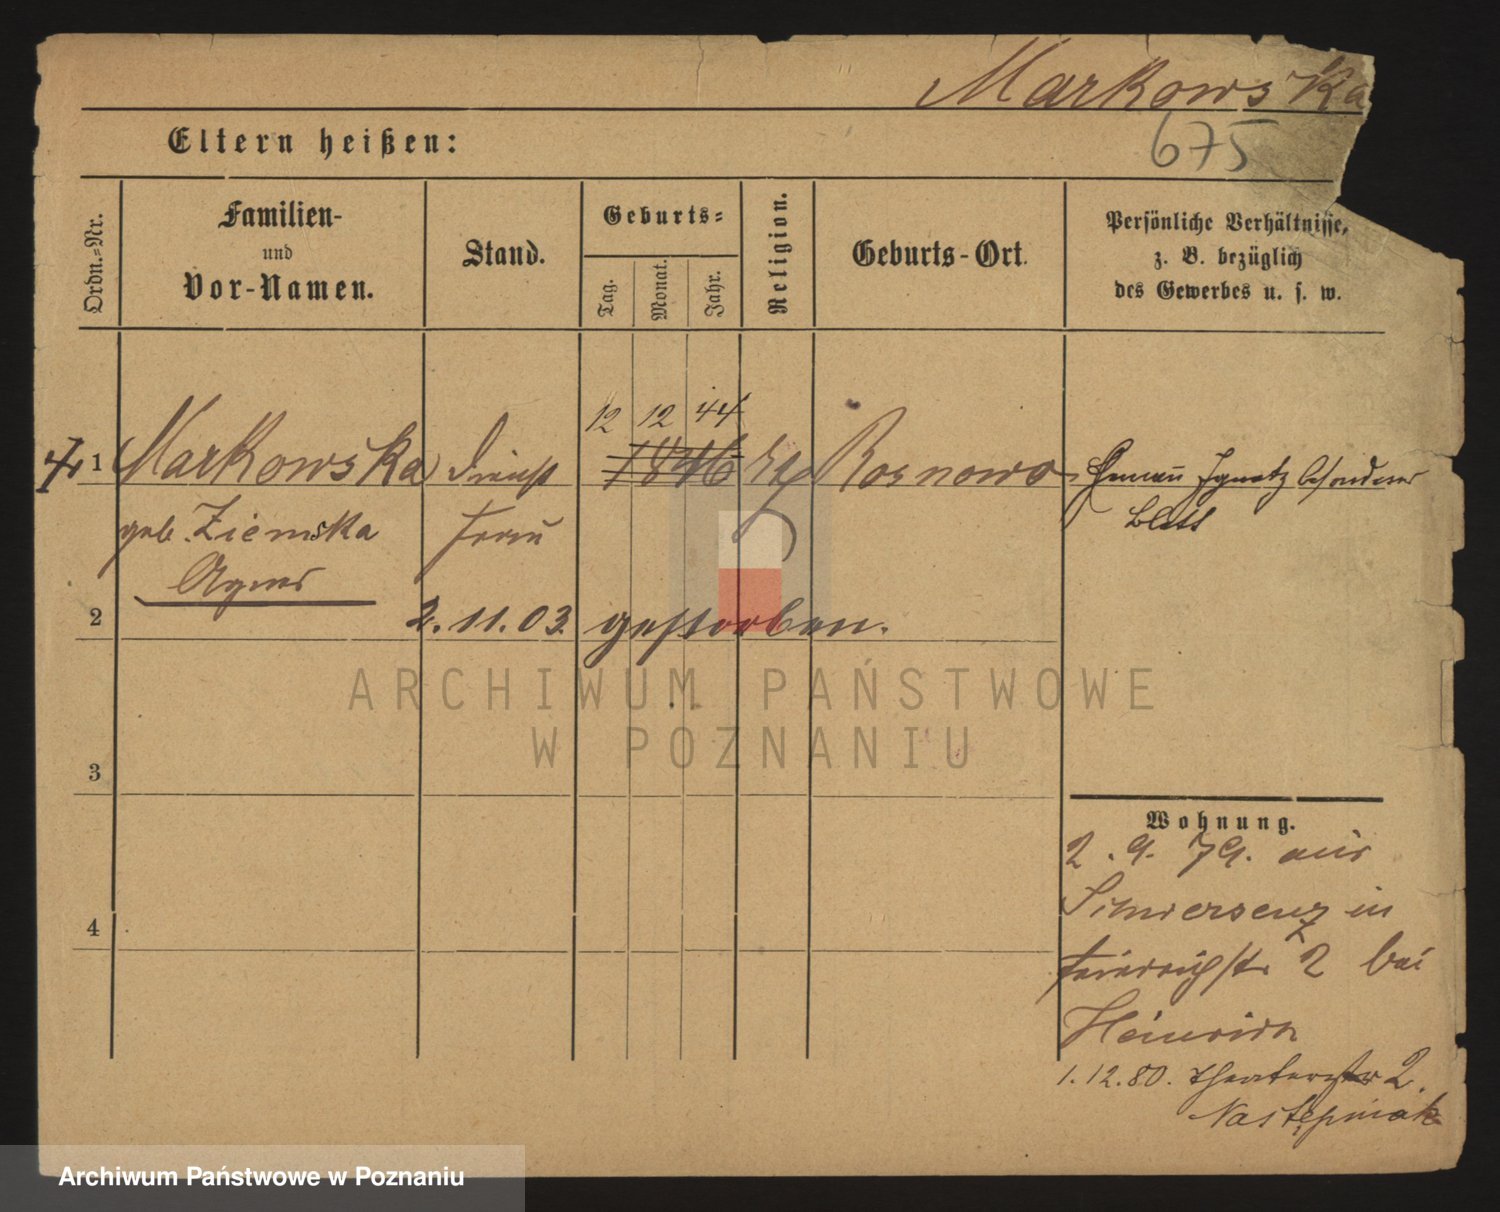 Markowska
675
Eltern heißen:
Ordn.-Nr.
Familien-
und
Vor-Namen.
Stand.
Geburts-
Tag.
Monat.
Jahr.
Religion.
Geburts-Ort.
Persönliche Verhältnisse,
z. B. bezüglich
des Gewerbes u. s. w.
12 12 44
1 Markowska Dienst 1846 Rosnowo Ignatz besonderes
geb. Ziemska frau Blatt
Agnes
2 2.11.03. gestorben.
ARCHIWUM PAŃSTWOWE
W POZNANIU
3
4
Wohnung.
2.9.79. aus
Schwersenz in
str 2 bei
Heinrich
1.12.80. Theaterstr 2.
Następniak
Archiwum Państwowe w Poznaniu